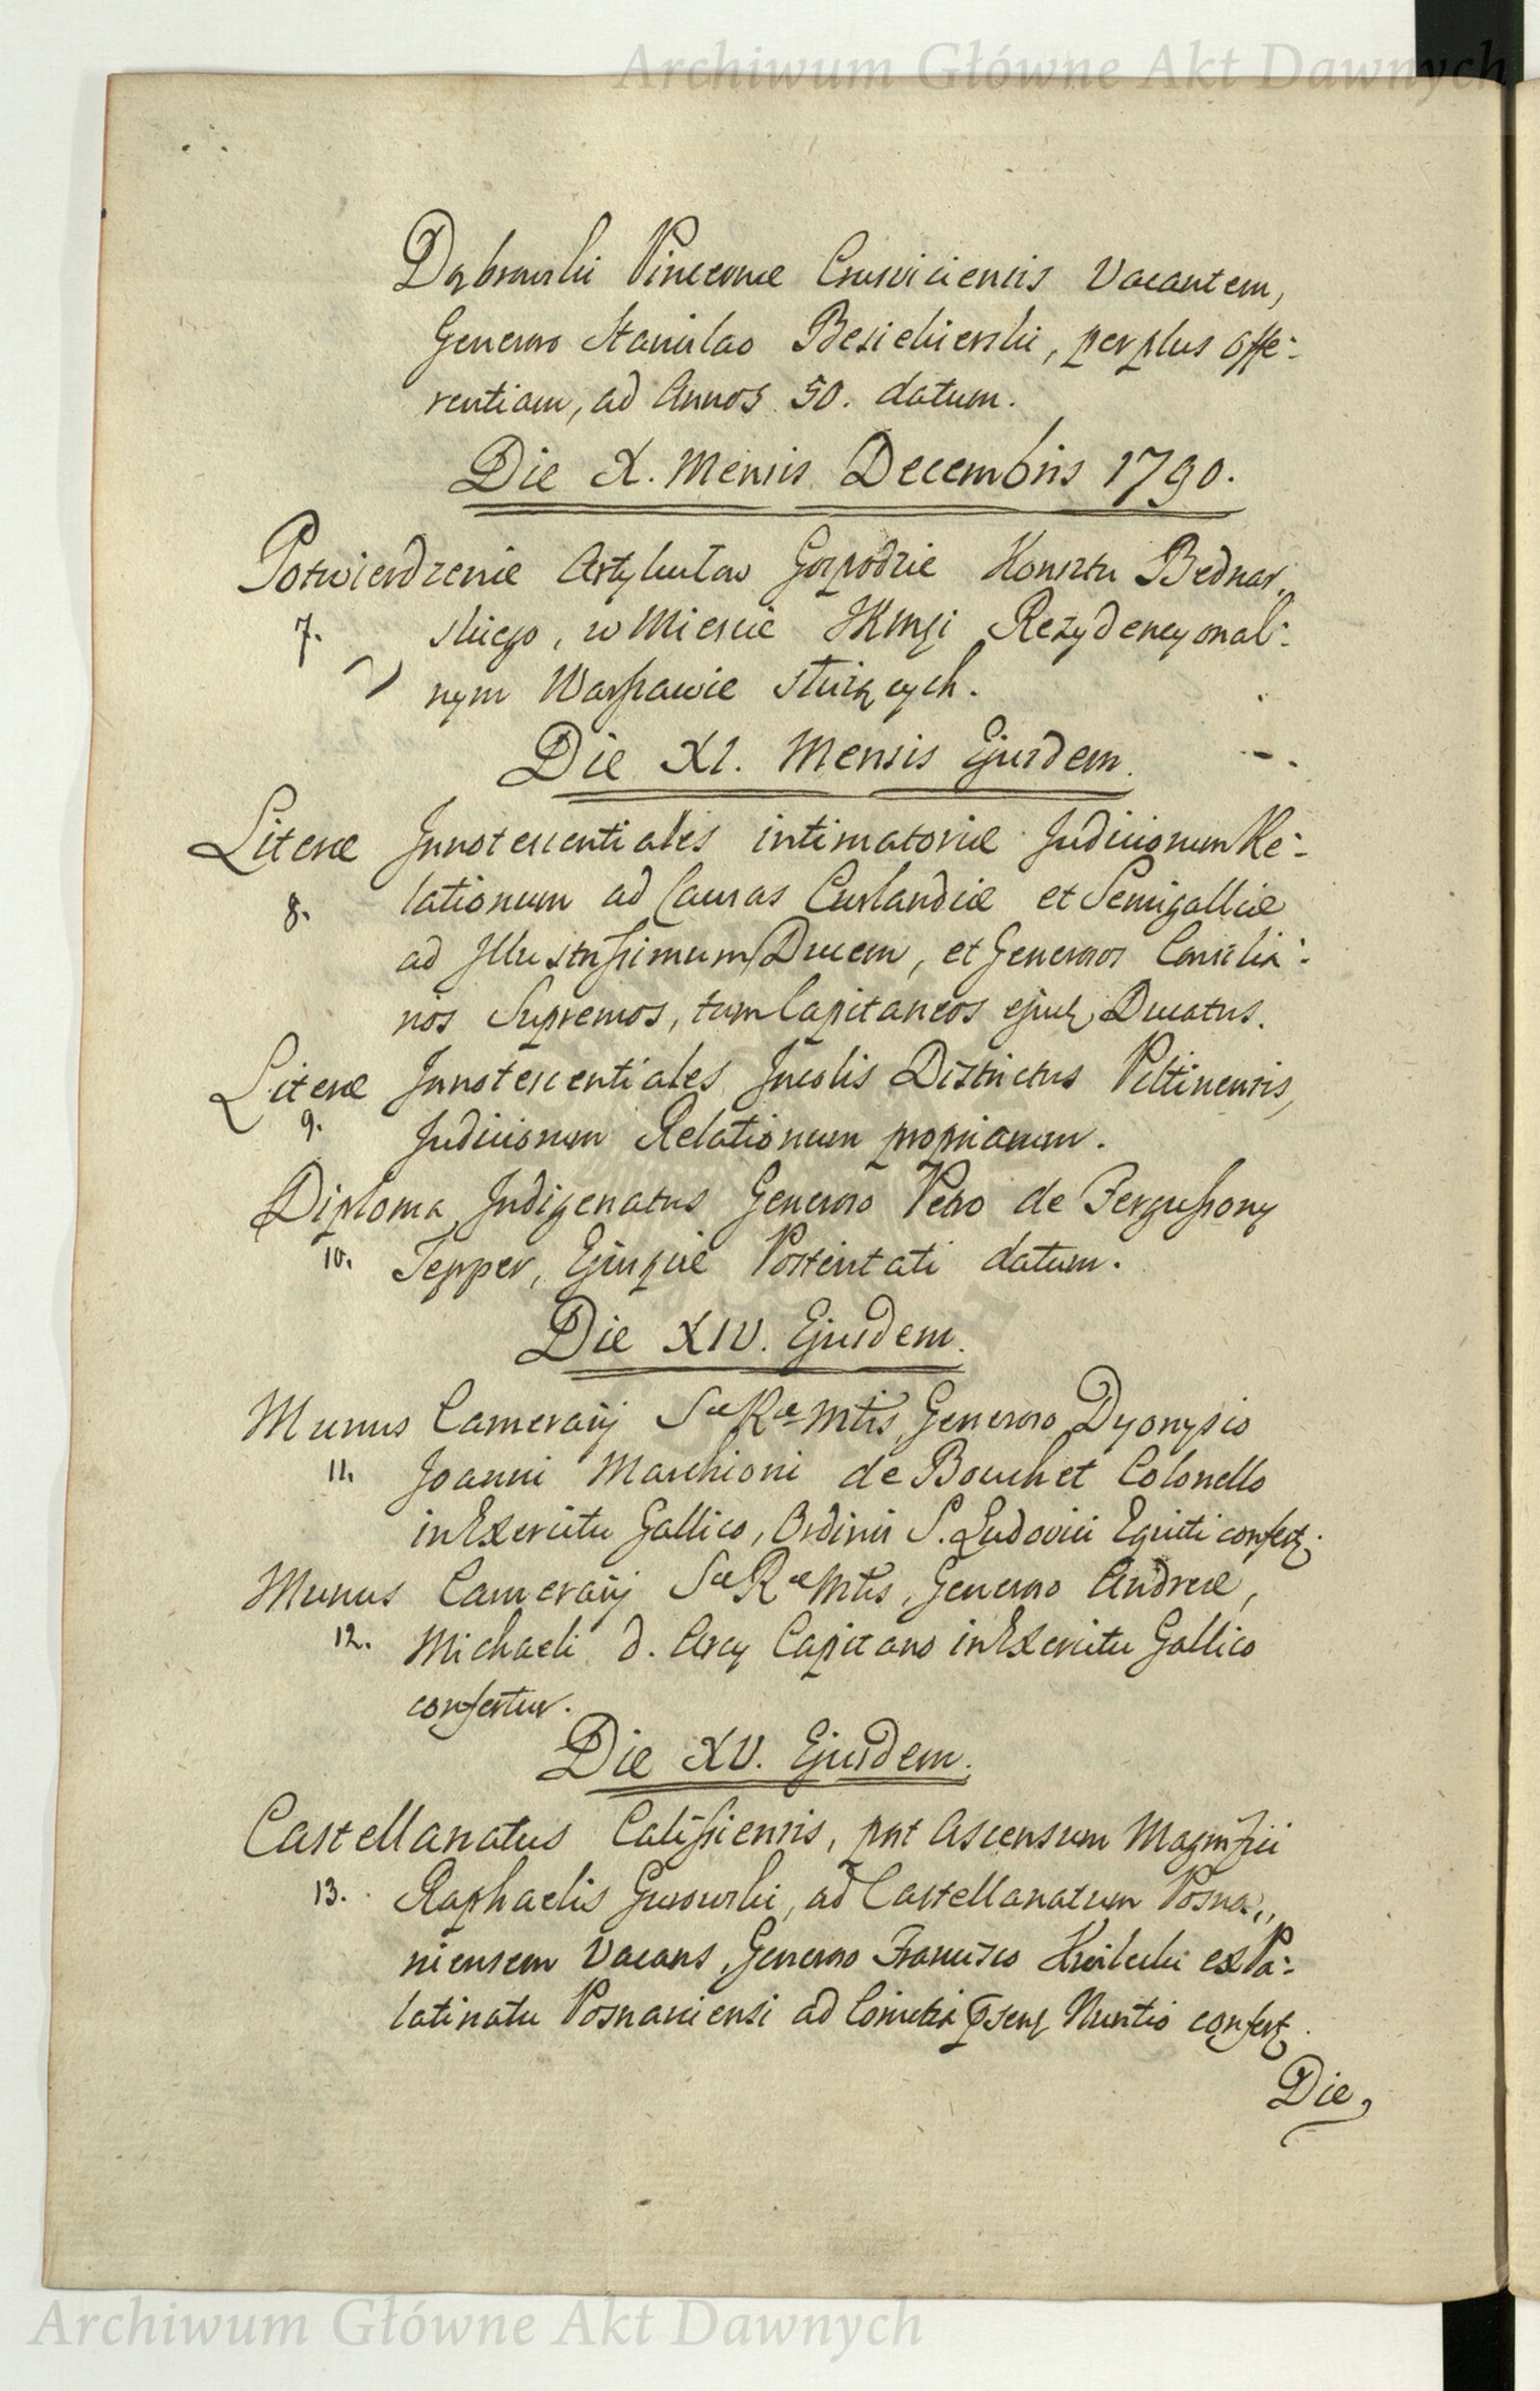 Archiwum Główne Akt Dawnych
Dąbrowski Pincernæ Crusviciensis Vacantem,
Generoso Stanislao Besiekierski, per plus offe-
rentiam, ad Annos 50. datum.
Die X. Mensis Decembris 1790.
Potwierdzenie Artykułow Gospodzie Konsztu Bednar„
7. skiego, w Miescie JKmsi Rezydencyonal-
nym Warszawie słuzących.
Die XI. Mensis Ejusdem.
Literæ Innotescentiales intimatoriæ Judiciorum Re-
8. lationum ad Causas Curlandiæ et Semigalliæ
ad Illustrissimum Ducem, et Generosos Consilia-
rios Supremos, tum Capitaneos ejusq Ducatus.
Literæ Innotescentiales Incolis Districtus Piltinensis,
9. Judiciorum Relationum propriarum.
Diploma Indigenatus Generoso Petro de Fergussony
10. Tepper, Ejusque Posteritati datum.
Die XIV. Ejusdem.
Munus Camerarij Sæ Ræ Mtis, Generoso Dyonysio
11. Joanni Marchioni de Bouchet Colonello
in Exercitu Gallico, Ordinis S. Ludovici Equiti confert.
Munus Camerarij Sæ Ræ Mtis, Generoso Andreæ,
12. Michaeli d. Arcy Capitano in Exercitu Gallico
confertur.
Die XV. Ejusdem.
Castellanatus Calissiensis, post Ascensum Magnifici
13. Raphaelis Gurowski, ad Castellanatum Posna„
niensem Vacans, Generoso Francisco Kwilecki ex Pa-
latinatu Posnaniensi ad Comitia Nuntio confert.
Die
Archiwum Główne Akt Dawnych